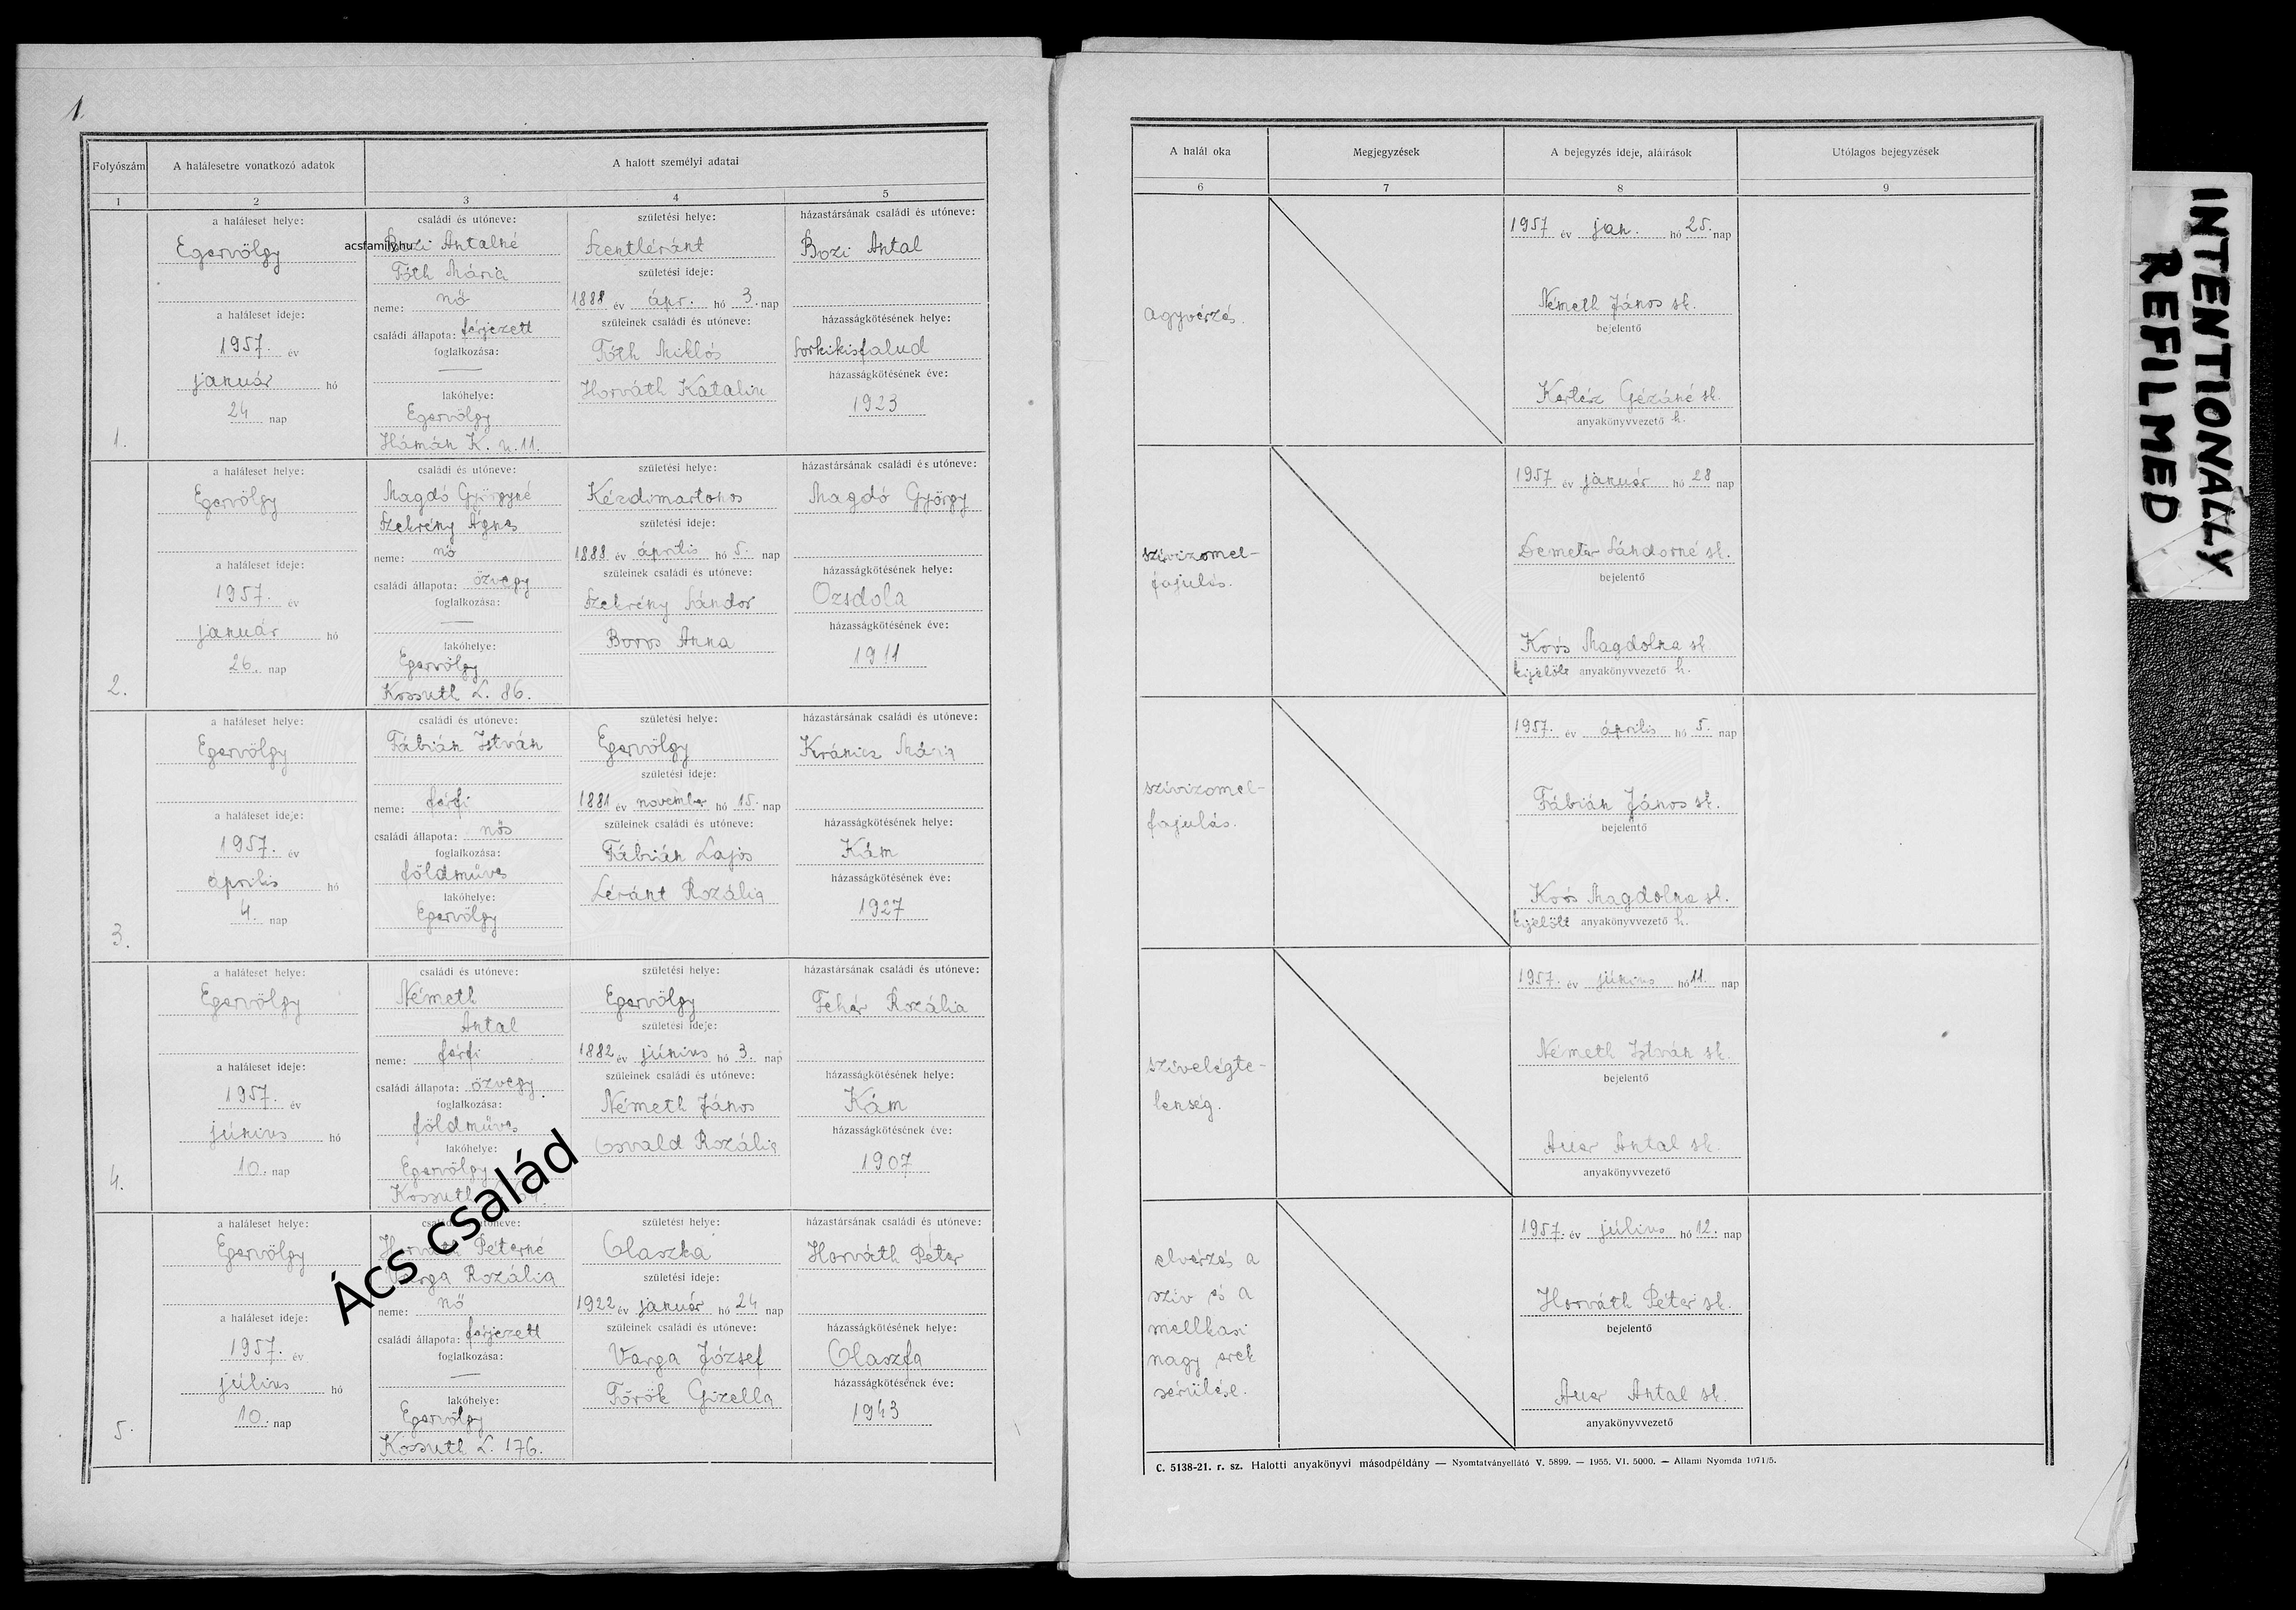 1.
Folyószám
A halálesetre vonatkozó adatok
A halott személyi adatai
1
2
3
4
5
a haláleset helye:
Egervölgy
a haláleset ideje:
1957. év
január hó
24 nap
1.
családi és utóneve:
Bozi Antalné
Tóth Mária
neme: nő
családi állapota: férjezett
foglalkozása:
—
lakóhelye:
Egervölgy
Hámán K. u. 11.
születési helye:
Szentléránt
születési ideje:
1888 év ápr. hó 3. nap
szüleinek családi és utóneve:
Tóth Miklós
Horváth Katalin
házastársának családi és utóneve:
Bozi Antal
házasságkötésének helye:
Sorkikisfalud
házasságkötésének éve:
1923
a haláleset helye:
Egervölgy
a haláleset ideje:
1957. év
január hó
26. nap
2.
családi és utóneve:
Magdó Györgyné
Szekrény Ágnes
neme: nő
családi állapota: özvegy
foglalkozása:
—
lakóhelye:
Egervölgy
Kossuth L. 86.
születési helye:
Kézdimartonos
születési ideje:
1888 év április hó 5. nap
szüleinek családi és utóneve:
Szekrény Sándor
Boros Anna
házastársának családi és utóneve:
Magdó György
házasságkötésének helye:
Ozsdola
házasságkötésének éve:
1911
a haláleset helye:
Egervölgy
a haláleset ideje:
1957. év
április hó
4. nap
3.
családi és utóneve:
Fábián István
neme: férfi
családi állapota: nős
foglalkozása:
földműves
lakóhelye:
Egervölgy
születési helye:
Egervölgy
születési ideje:
1881 év november hó 15. nap
szüleinek családi és utóneve:
Fábián Lajos
Léránt Rozália
házastársának családi és utóneve:
Kránicz Mária
házasságkötésének helye:
Kám
házasságkötésének éve:
1927
a haláleset helye:
Egervölgy
a haláleset ideje:
1957. év
június hó
10. nap
4.
családi és utóneve:
Németh
Antal
neme: férfi
családi állapota: özvegy
foglalkozása:
földműves
lakóhelye:
Egervölgy
Kossuth
születési helye:
Egervölgy
születési ideje:
1882 év június hó 3. nap
szüleinek családi és utóneve:
Németh János
Osvald Rozália
házastársának családi és utóneve:
Fehér Rozália
házasságkötésének helye:
Kám
házasságkötésének éve:
1907
a haláleset helye:
Egervölgy
a haláleset ideje:
1957. év
július hó
10. nap
5.
családi és utóneve:
Horváth Péterné
Varga Rozália
neme: nő
családi állapota: férjezett
foglalkozása:
—
lakóhelye:
Egervölgy
Kossuth L. 176.
születési helye:
Olaszka
születési ideje:
1922 év január hó 24 nap
szüleinek családi és utóneve:
Varga József
Török Gizella
házastársának családi és utóneve:
Horváth Péter
házasságkötésének helye:
Olaszfa
házasságkötésének éve:
1943
acsfamily.hu
Ács család
A halál oka
Megjegyzések
A bejegyzés ideje, aláírások
Utólagos bejegyzések
6
7
8
9
agyvérzés.
1957 év jan. hó 25. nap
Németh János sk.
bejelentő
Kertész Gézáné sk.
anyakönyvvezető h.
szívizomel-
fajulás.
1957 év január hó 28 nap
Demeter Sándorné sk.
bejelentő
Koós Magdolna sk
kijelölt anyakönyvvezető h.
szívizomel-
fajulás.
1957. év április hó 5. nap
Fábián János sk.
bejelentő
Koós Magdolna sk.
kijelölt anyakönyvvezető h.
szívelégte-
lenség.
1957. év június hó 11. nap
Németh István sk.
bejelentő
Auer Antal sk.
anyakönyvvezető
elvérzés a
szív és a
mellkasi
nagy erek
sérülése.
1957. év július hó 12. nap
Horváth Péter sk.
bejelentő
Auer Antal sk.
anyakönyvvezető
C. 5138-21. r. sz. Halotti anyakönyvi másodpéldány — Nyomtatványellátó V. 5899. — 1955. VI. 5000. — Állami Nyomda 1071/5.
INTENTIONALLY
REFILMED